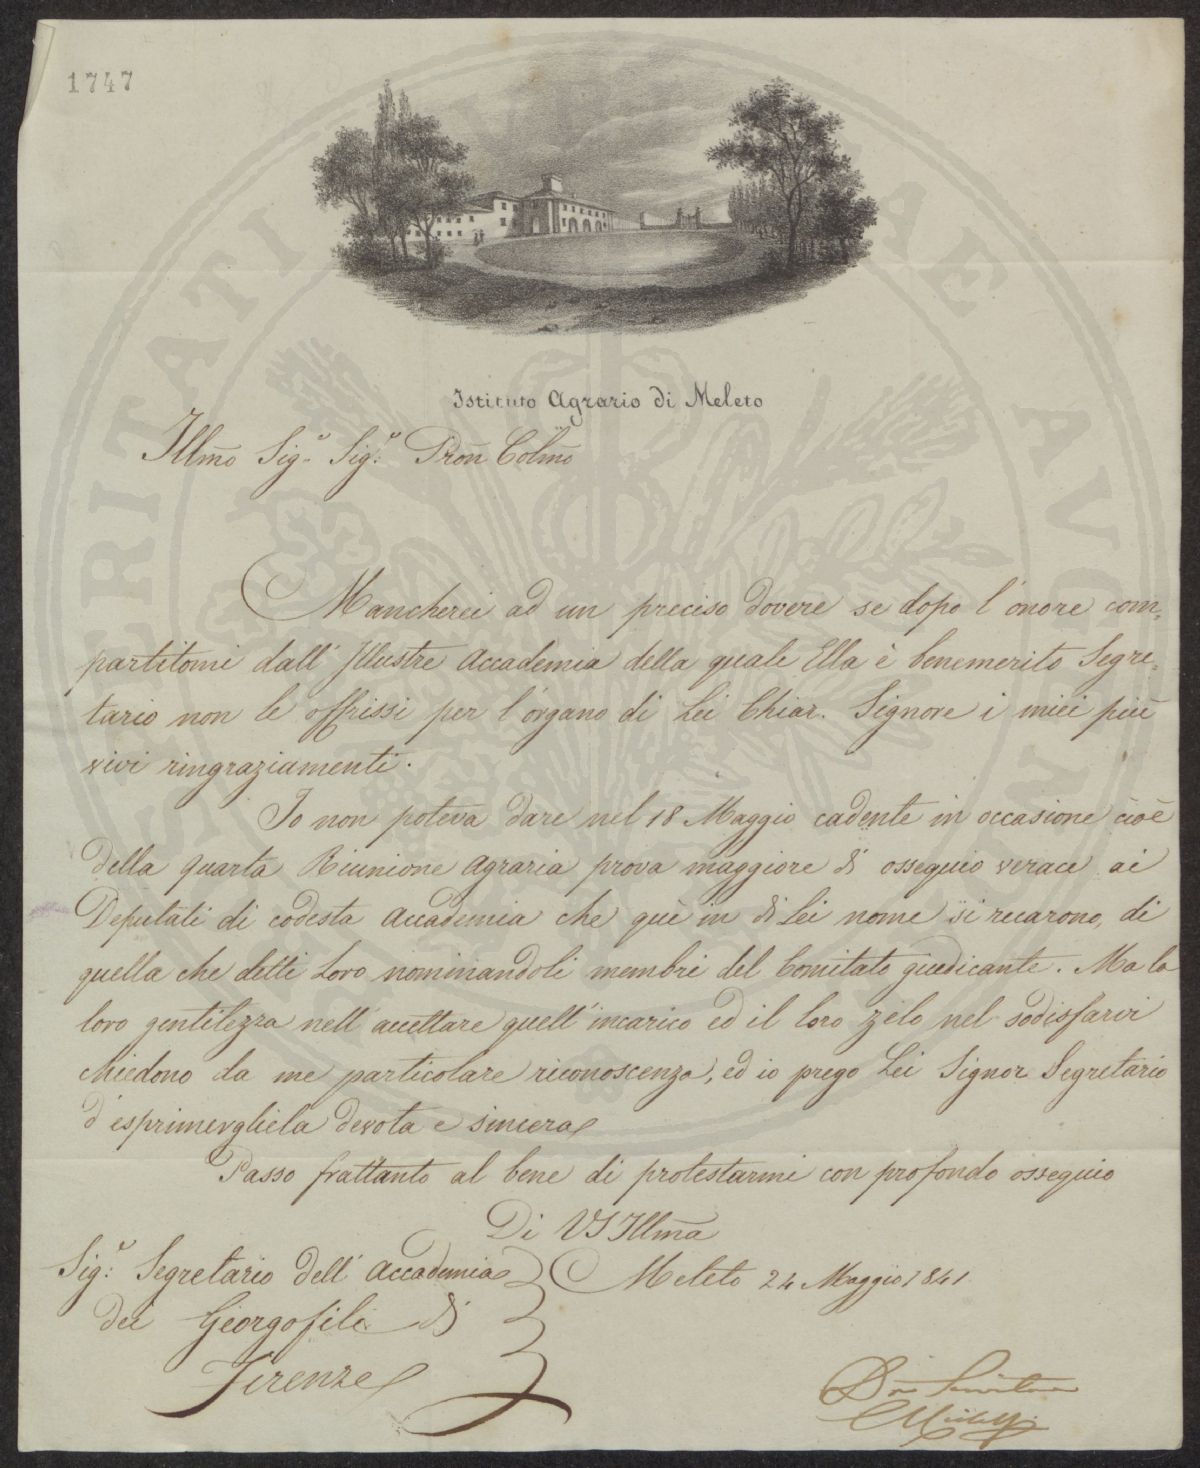 1747
Istituto Agrario di Meleto
Illmo Sigr. Sigr. Pron Colmo
Mancherei ad un preciso dovere se dopo l'onore com-
partitomi dall'Illustre Accademia della quale Ella è benemerito Segre-
tario non le offrissi per l'organo di Lei Chiar. Signore i miei più
vivi ringraziamenti.
Io non poteva dare nel 18 Maggio cadente in occasione cioè
della quarta Riunione agraria prova maggiore di ossequio verace ai
Deputati di codesta Accademia che quì in di Lei nome si recarono, di
quella che detti Loro nominandoli membri del Comitato giudicante. Ma la
loro gentilezza nell'accettare quell'incarico ed il loro zelo nel sodisfarvi
chiedono da me particolare riconoscenza, ed io prego Lei Signor Segretario
d'esprimergliela devota e sincera
Passo frattanto al bene di protestarmi con profondo ossequio
Di VS Illma
Sigr. Segretario dell'Accademia
dei Georgofili di
Firenze
Meleto 24 Maggio 1841